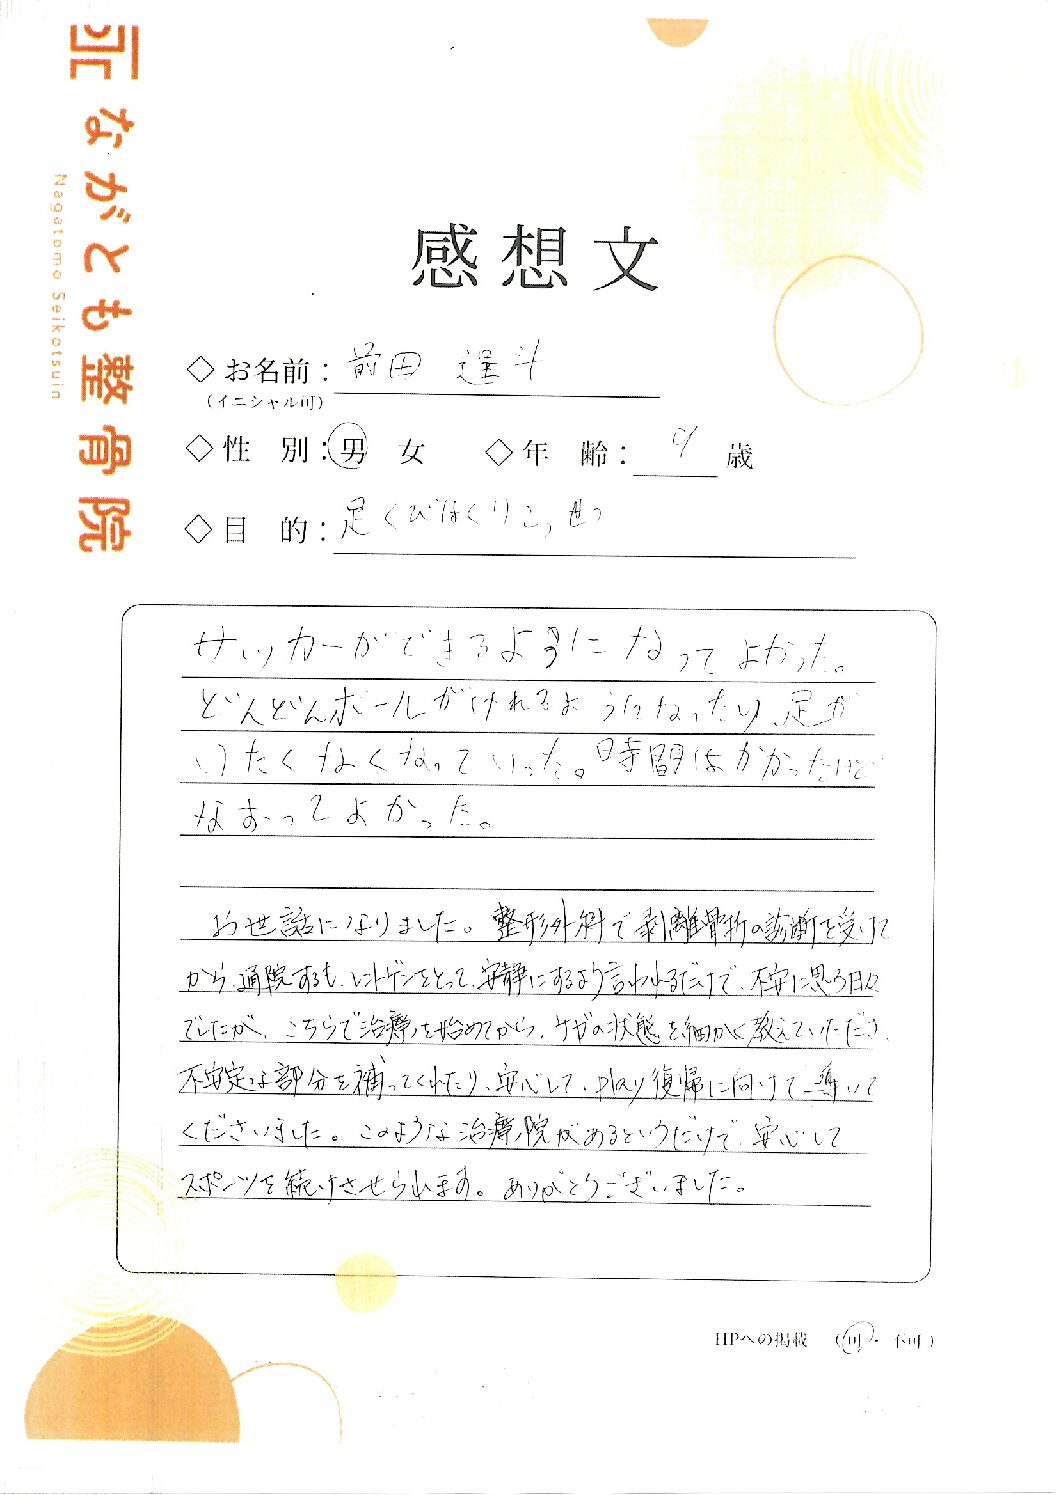 ながとも整骨院
Nagatomo Seikotsuin
感想文
◇お名前：前田 遥斗
（イニシャル可）
◇性 別：男 女 ◇年 齢：9歳
◇目 的：足くびはくりこっせつ
サッカーができるようになってよかった。
どんどんボールがけれるようになったり、足が
いたくなくなっていった。時間はかかったけど
なおってよかった。
お世話になりました。整形外科で剥離骨折の診断を受けて
から、通院するも、レントゲンをとって、安静にするよう言われるだけで、不安に思う日々
でしたが、こちらで治療を始めてから、ケガの状態を細かく教えていただき、
不安定な部分を補ってくれたり、安心して、play復帰に向けて導いて
くださいました。このような治療院があるというだけで、安心して
スポーツを続けさせられます。ありがとうございました。
HPへの掲載 （可・不可）